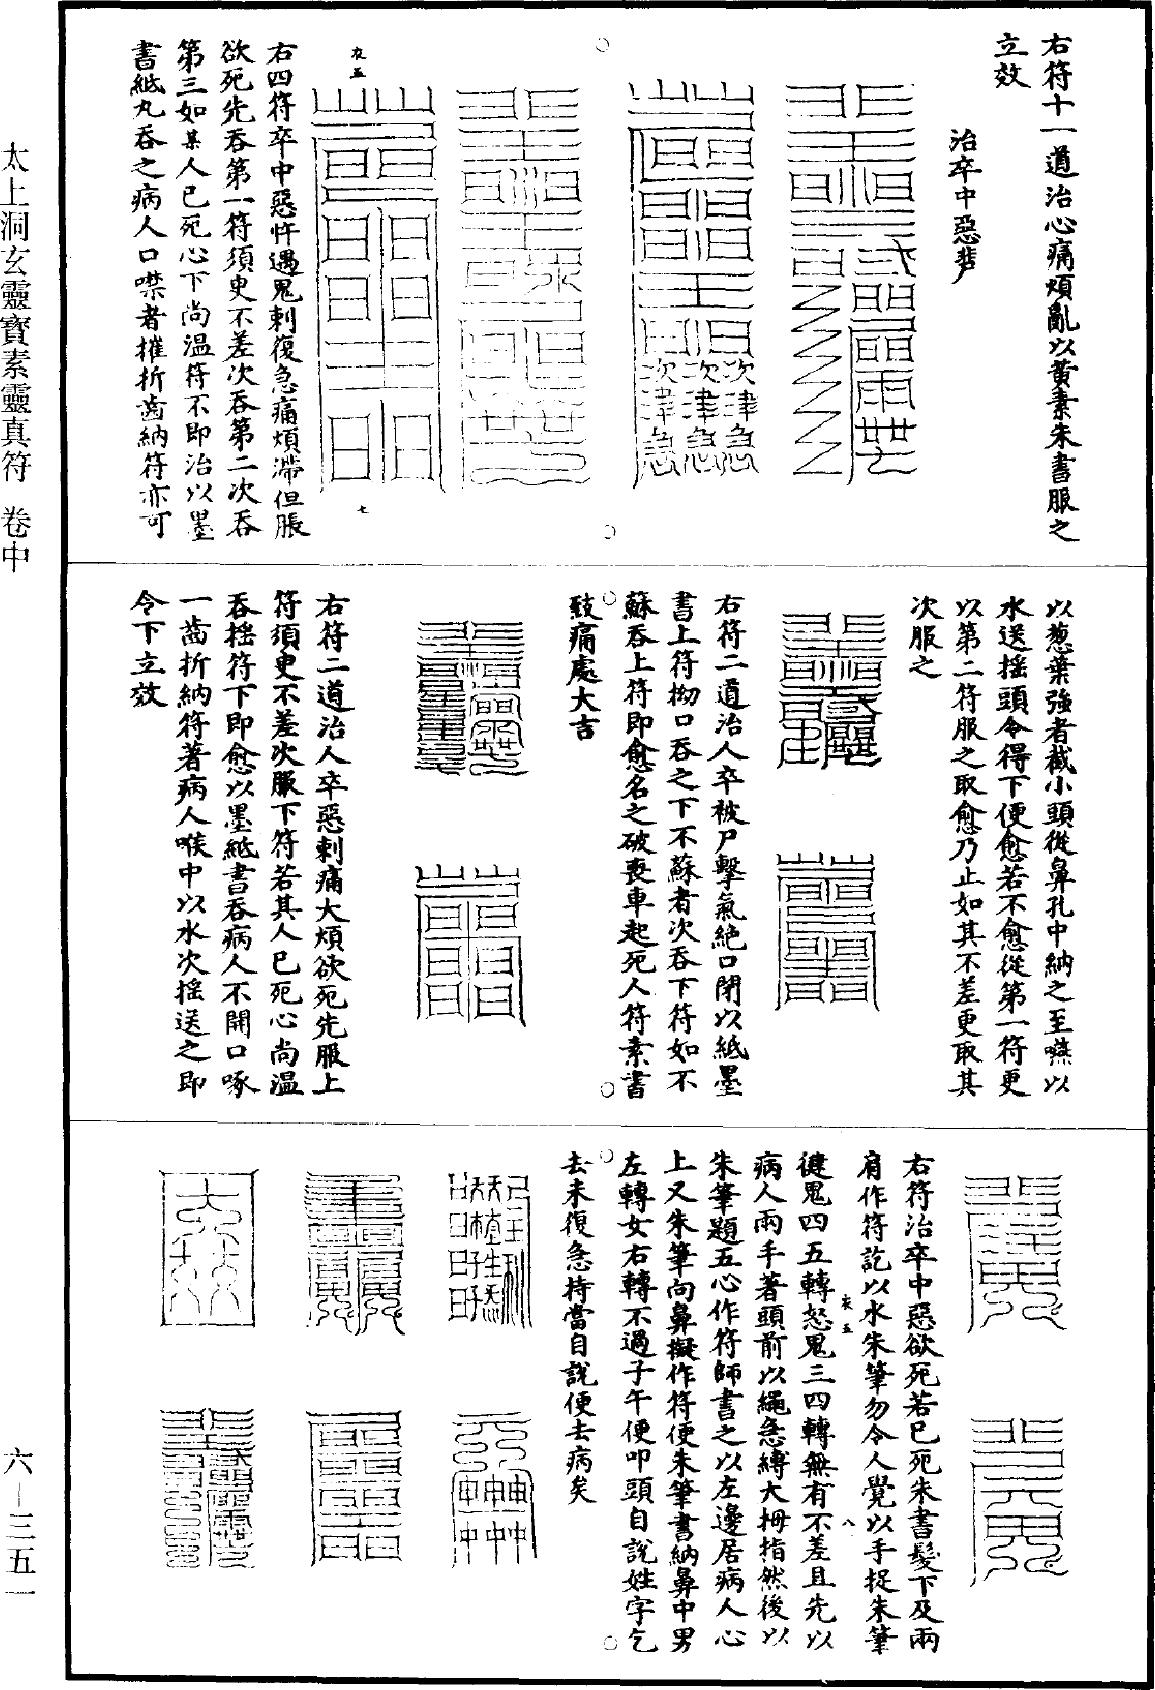 右符十一道治心痛煩亂以黃素朱書服之
立效
治卒中惡悲
右四符卒中惡忤遇鬼刺復急痛煩滯但脹
欲死先吞第一符須臾不差次吞第二次吞
第三如某人已死心下尚溫符不即治以墨
書紙丸吞之病人口噤者摧折齒納符亦可
以葱葉強者截小頭從鼻孔中納之至嚥以
水送搖頭令得下便愈若不愈從第一符更
以第二符服之取愈乃止如其不差更取其
次服之
右符二道治人卒被尸擊氣絕口閉以紙墨
書上符拗口吞之下不蘇者次吞下符如不
蘇吞上符即愈名之破喪車起死人符素書
敁痛處大吉
右符二道治人卒惡刺痛大煩欲死先服上
符須臾不差次服下符若其人已死心尚溫
吞搖符下即愈以墨紙書吞病人不開口啄
一齒折納符著病人喉中以水次搖送之即
令下立效
右符治卒中惡欲死若已死朱書髮下及兩
肩作符訖以水朱筆勿令人覺以手捉朱筆
健鬼四五轉怒鬼三四轉無有不差且先以
病人兩手著頭前以繩急縛大拇指然後以
朱筆題五心作符師書之以左邊居病人心
上又朱筆向鼻擬作符便朱筆書納鼻中男
左轉女右轉不過子午便叩頭自說姓字乞
去未復急持當自說便去病矣
太上洞玄靈寶素靈真符 卷中
六—三五一